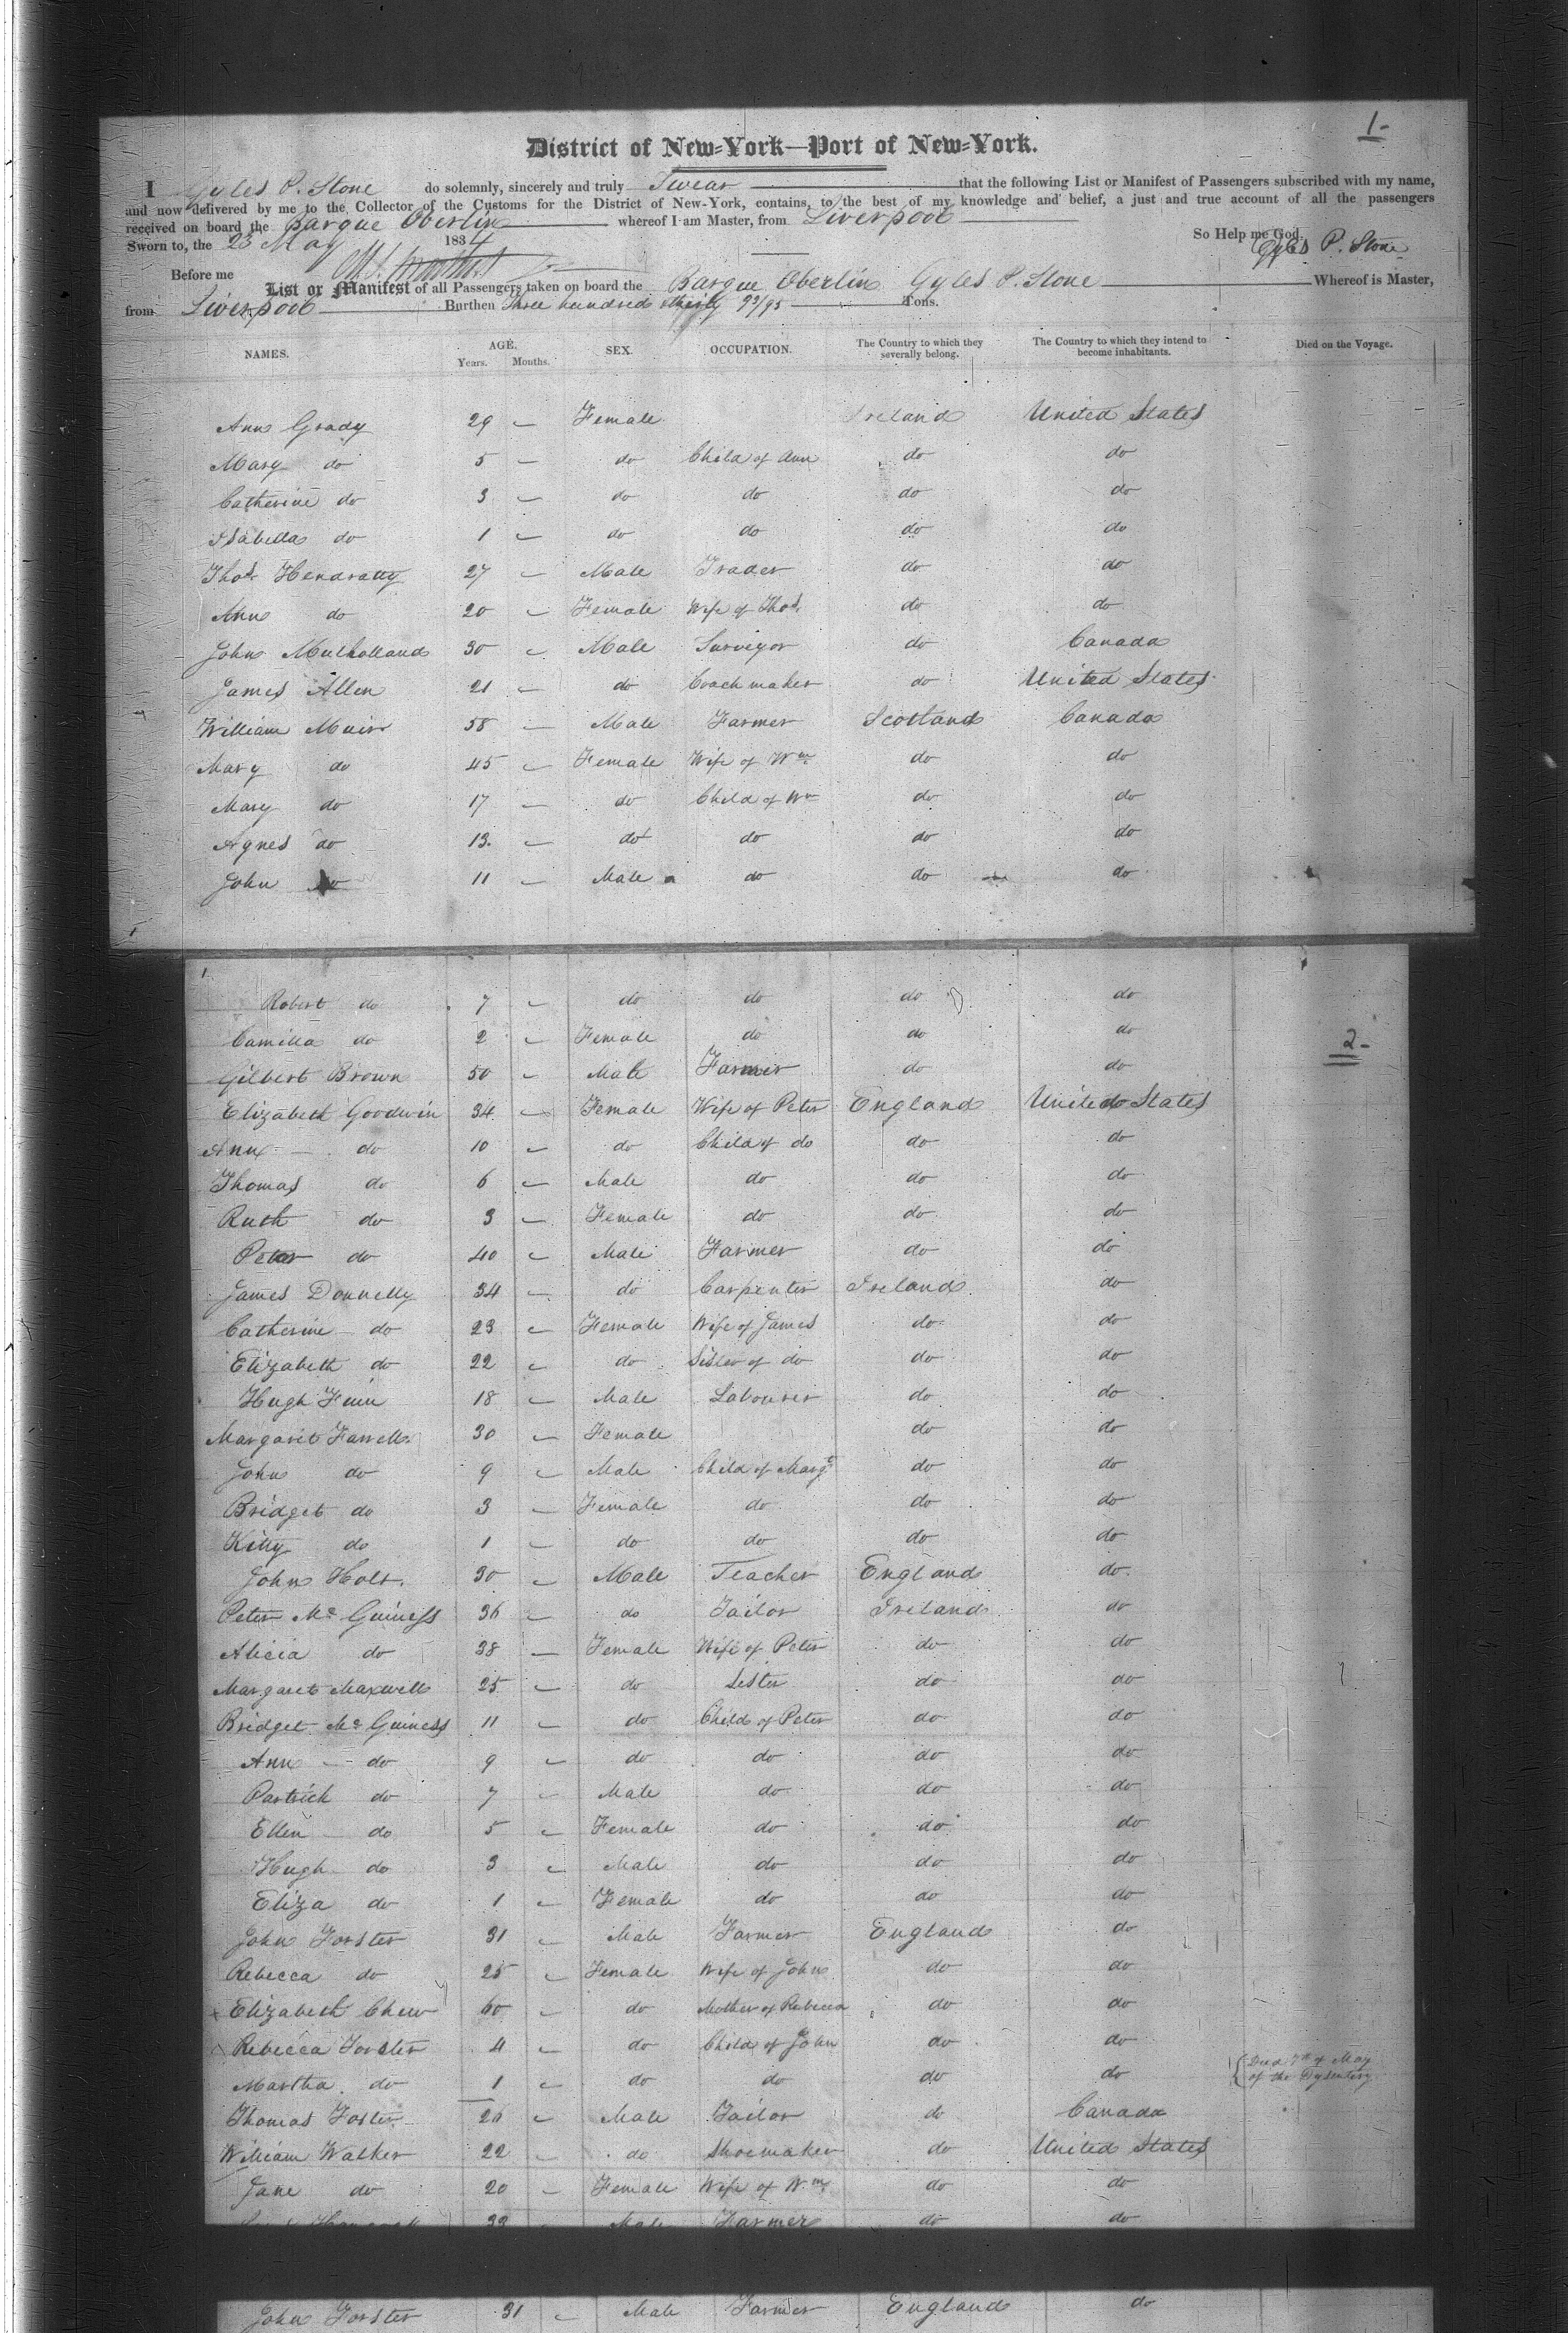 1-
District of New-York—Port of New-York.
I Gyles P. Stone do solemnly, sincerely and truly Swear that the following List or Manifest of Passengers subscribed with my name,
and now delivered by me to the Collector of the Customs for the District of New-York, contains, to the best of my knowledge and belief, a just and true account of all the passengers
received on board the Barque Oberlin whereof I am Master, from Liverpool
Sworn to, the 23 May 1834 So Help me God.
Gyles P. Stone
Before me
List or Manifest of all Passengers taken on board the Barque Oberlin Gyles P. Stone Whereof is Master,
from Liverpool Burthen Three hundred thirty 93/95 Tons.
NAMES. AGE. Years. Months. SEX. OCCUPATION. The Country to which they severally belong. The Country to which they intend to become inhabitants. Died on the Voyage.
Ann Grady 29 Female Ireland United States
Mary do 5 do Child of Ann do do
Catherine do 3 do do do do
Isabella do 1 do do do do
Thos. Hendratty 27 Male Trader do do
Ann do 20 Female Wife of Thos. do do
John Mulholland 30 Male Surveyor do Canada
James Allen 21 do Coach maker do United States
William Muir 58 Male Farmer Scotland Canada
Mary do 45 Female Wife of Wm do do
Mary do 17 do Child of Wm do do
Agnes do 13. do do do do
John do 11 Male do do do
1
Robert do 7 do do do do
2-
Camilla do 2 Female do do do
Gilbert Brown 50 Male Farmer do do
Elizabeth Goodwin 34 Female Wife of Peter England United States
Ann do 10 do Child of do do do
Thomas do 6 Male do do do
Ruth do 3 Female do do do
Peter do 40 Male Farmer do do
James Donnelly 34 do Carpenter Ireland do
Catherine do 23 Female Wife of James do do
Elizabeth do 22 do Sister of do do do
Hugh Finn 18 Male Labourer do do
Margaret Farrell 30 Female do do
John do 9 Male Child of Margt do do
Bridget do 3 Female do do do
Kitty do 1 do do do do
John Holt. 30 Male Teacher England do
Peter Mc Guiness 36 do Tailor Ireland do
Alicia do 38 Female Wife of Peter do do
Margaret Maxwell 25 do Sister do do
Bridget Mc Guiness 11 do Child of Peter do do
Ann do 9 do do do do
Partrick do 7 Male do do do
Ellen do 5 Female do do do
Hugh do 3 Male do do do
Eliza do 1 Female do do do
John Forster 31 Male Farmer England do
Rebecca do 25 Female Wife of John do do
Elizabeth Chew 60 do Mother of Rebecca do do
Rebecca Forster 4 do Child of John do do
Martha do 1 do do do do Died 7th of May of the Dysentery
Thomas Foster 26 Male Tailor do Canada
William Walker 22 do Shoemaker do United States
Jane do 20 Female Wife of Wm do do
33 Male Farmer do do
John Forster 31 Male Farmer England do